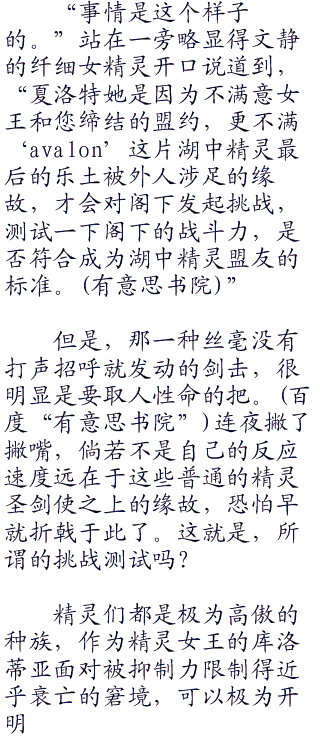 “事情是这个样子
的。”站在一旁略显得文静
的纤细女精灵开口说道到，
“夏洛特她是因为不满意女
王和您缔结的盟约，更不满
‘avalon’这片湖中精灵最
后的乐土被外人涉足的缘
故，才会对阁下发起挑战，
测试一下阁下的战斗力，是
否符合成为湖中精灵盟友的
标准。(有意思书院)”
但是，那一种丝毫没有
打声招呼就发动的剑击，很
明显是要取人性命的把。(百
度“有意思书院”)连夜撇了
撇嘴，倘若不是自己的反应
速度远在于这些普通的精灵
圣剑使之上的缘故，恐怕早
就折戟于此了。这就是，所
谓的挑战测试吗？
精灵们都是极为高傲的
种族，作为精灵女王的库洛
蒂亚面对被抑制力限制得近
乎衰亡的窘境，可以极为开
明